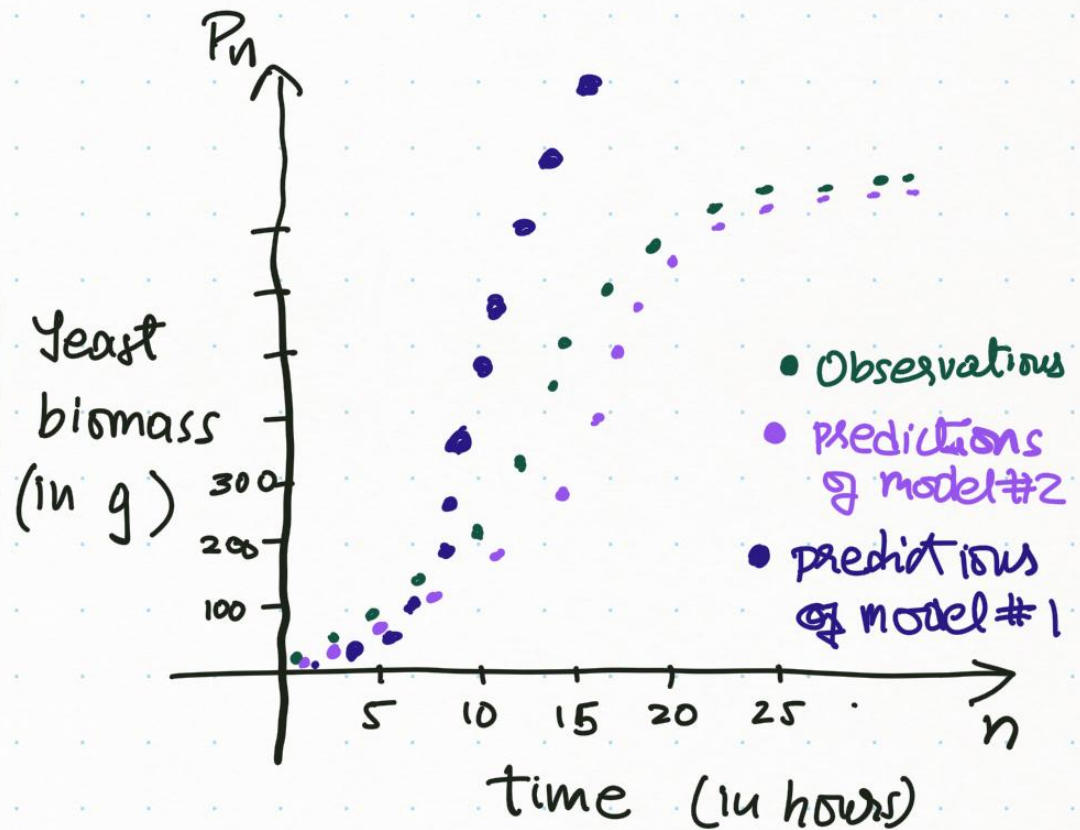 Pn
Yeast
biomass
(in g)
300
200
100
5 10 15 20 25
n
time (in hours)
Observations
predictions
of model #2
predictions
of model #1